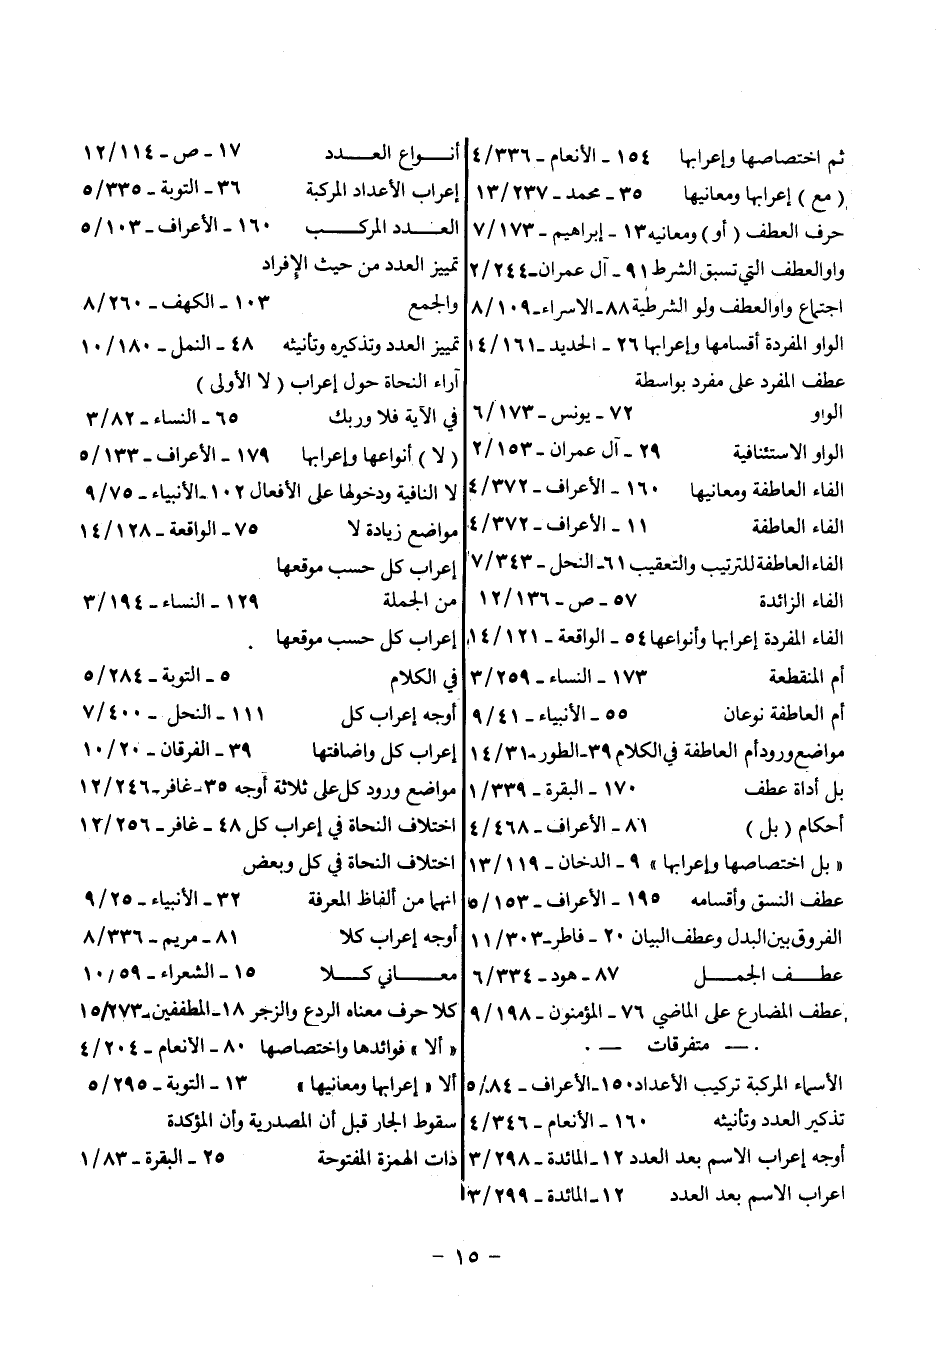 ثم اختصاصها وإعرابها ١٥٤ ـ الأنعام ـ ٤/٣٣٦
( مع ) إعرابها ومعانيها ٣٥ ـ محمد ـ ١٣/٢٣٧
حرف العطف ( أو ) ومعانيه ١٣ ـ إبراهيم ـ ٧/١٧٣
واو العطف التي تسبق الشرط ٩١ ـ آل عمران ـ ٢/٢٤٤
اجتماع واو العطف ولو الشرطية ٨٨ ـ الاسراء ـ ٨/١٠٩
الواو المفردة أقسامها وإعرابها ٢٦ ـ الحديد ـ ١٤/١٦١
عطف المفرد على مفرد بواسطة
الواو ٧٢ ـ يونس ـ ٦/١٧٣
الواو الاستئنافية ٢٩ ـ آل عمران ـ ٢/١٥٣
الفاء العاطفة ومعانيها ١٦٠ ـ الأعراف ـ ٤/٣٧٢
الفاء العاطفة ١١ ـ الأعراف ـ ٤/٣٧٢
الفاء العاطفة للترتيب والتعقيب ٦١ ـ النحل ـ ٧/٣٤٣
الفاء الزائدة ٥٧ ـ ص ـ ١٢/١٣٦
الفاء المفردة إعرابها وأنواعها ٥٤ ـ الواقعة ـ ١٤/١٢١
أم المنقطعة ١٧٣ ـ النساء ـ ٣/٢٥٩
أم العاطفة نوعان ٥٥ ـ الأنبياء ـ ٩/٤١
مواضع ورود أم العاطفة في الكلام ٣٩ ـ الطور ـ ١٤/٣١
بل أداة عطف ١٧٠ ـ البقرة ـ ١/٣٣٩
أحكام ( بل ) ٨١ ـ الأعراف ـ ٤/٤٦٨
« بل اختصاصها وإعرابها » ٩ ـ الدخان ـ ١٣/١١٩
عطف النسق وأقسامه ١٩٥ ـ الأعراف ـ ٥/١٥٣
الفروق بين البدل وعطف البيان ٢٠ ـ فاطر ـ ١١/٣٠٣
عطـف الجمـل ٨٧ ـ هود ـ ٦/٣٣٤
عطف المضارع على الماضي ٧٦ ـ المؤمنون ـ ٩/١٩٨
ـ متفرقات ـ
الأسماء المركبة تركيب الأعداد ١٥٠ ـ الأعراف ـ ٥/٨٤
تذكير العدد وتأنيثه ١٦٠ ـ الأنعام ـ ٤/٣٤٦
أوجه إعراب الاسم بعد العدد ١٢ ـ المائدة ـ ٣/٢٩٨
اعراب الاسم بعد العدد ١٢ ـ المائدة ـ ٣/٢٩٩
أنـواع العـدد ١٧ ـ ص ـ ١٢/١١٤
إعراب الأعداد المركبة ٣٦ ـ التوبة ـ ٥/٣٣٥
العـدد المركـب ١٦٠ ـ الأعراف ـ ٥/١٠٣
تمييز العدد من حيث الإفراد
والجمع ١٠٣ ـ الكهف ـ ٨/٢٦٠
تمييز العدد وتذكيره وتأنيثه ٤٨ ـ النمل ـ ١٠/١٨٠
آراء النحاة حول إعراب ( لا الأولى )
في الآية فلا وربك ٦٥ ـ النساء ـ ٣/٨٢
( لا ) أنواعها وإعرابها ١٧٩ ـ الأعراف ـ ٥/١٣٣
لا النافية ودخولها على الأفعال ١٠٢ ـ الأنبياء ـ ٩/٧٥
مواضع زيادة لا ٧٥ ـ الواقعة ـ ١٤/١٢٨
إعراب كل حسب موقعها
من الجملة ١٢٩ ـ النساء ـ ٣/١٩٤
إعراب كل حسب موقعها
في الكلام ٥ ـ التوبة ـ ٥/٢٨٤
أوجه إعراب كل ١١١ ـ النحل ـ ٧/٤٠٠
إعراب كل واضافتها ٣٩ ـ الفرقان ـ ١٠/٢٠
مواضع ورود كل على ثلاثة أوجه ٣٥ ـ غافر ـ ١٢/٢٤٦
اختلاف النحاة في إعراب كل ٤٨ ـ غافر ـ ١٢/٢٥٦
اختلاف النحاة في كل وبعض
انهما من ألفاظ المعرفة ٣٢ ـ الأنبياء ـ ٩/٢٥
أوجه إعراب كلا ٨١ ـ مريم ـ ٨/٣٣٦
معـاني كـلا ١٥ ـ الشعراء ـ ١٠/٥٩
كلا حرف معناه الردع والزجر ١٨ ـ المطففين ـ ١٥/٢٧٣
« ألا » فوائدها واختصاصها ٨٠ ـ الأنعام ـ ٤/٢٠٤
ألا « إعرابها ومعانيها » ١٣ ـ التوبة ـ ٥/٢٩٥
سقوط الجار قبل أن المصدرية وأن المؤكدة
ذات الهمزة المفتوحة ٢٥ ـ البقرة ـ ١/٨٣
ـ ١٥ ـ